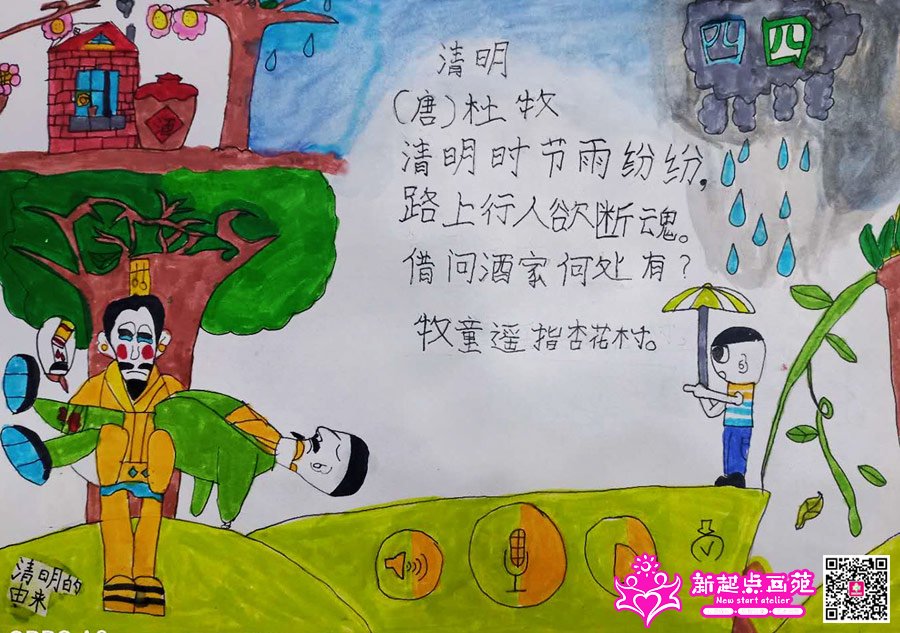 四 四
清明
(唐)杜牧
清明时节雨纷纷,
路上行人欲断魂。
借问酒家何处有?
牧童遥指杏花村。
酒
清明的
由来
新起点画苑
New start atelier